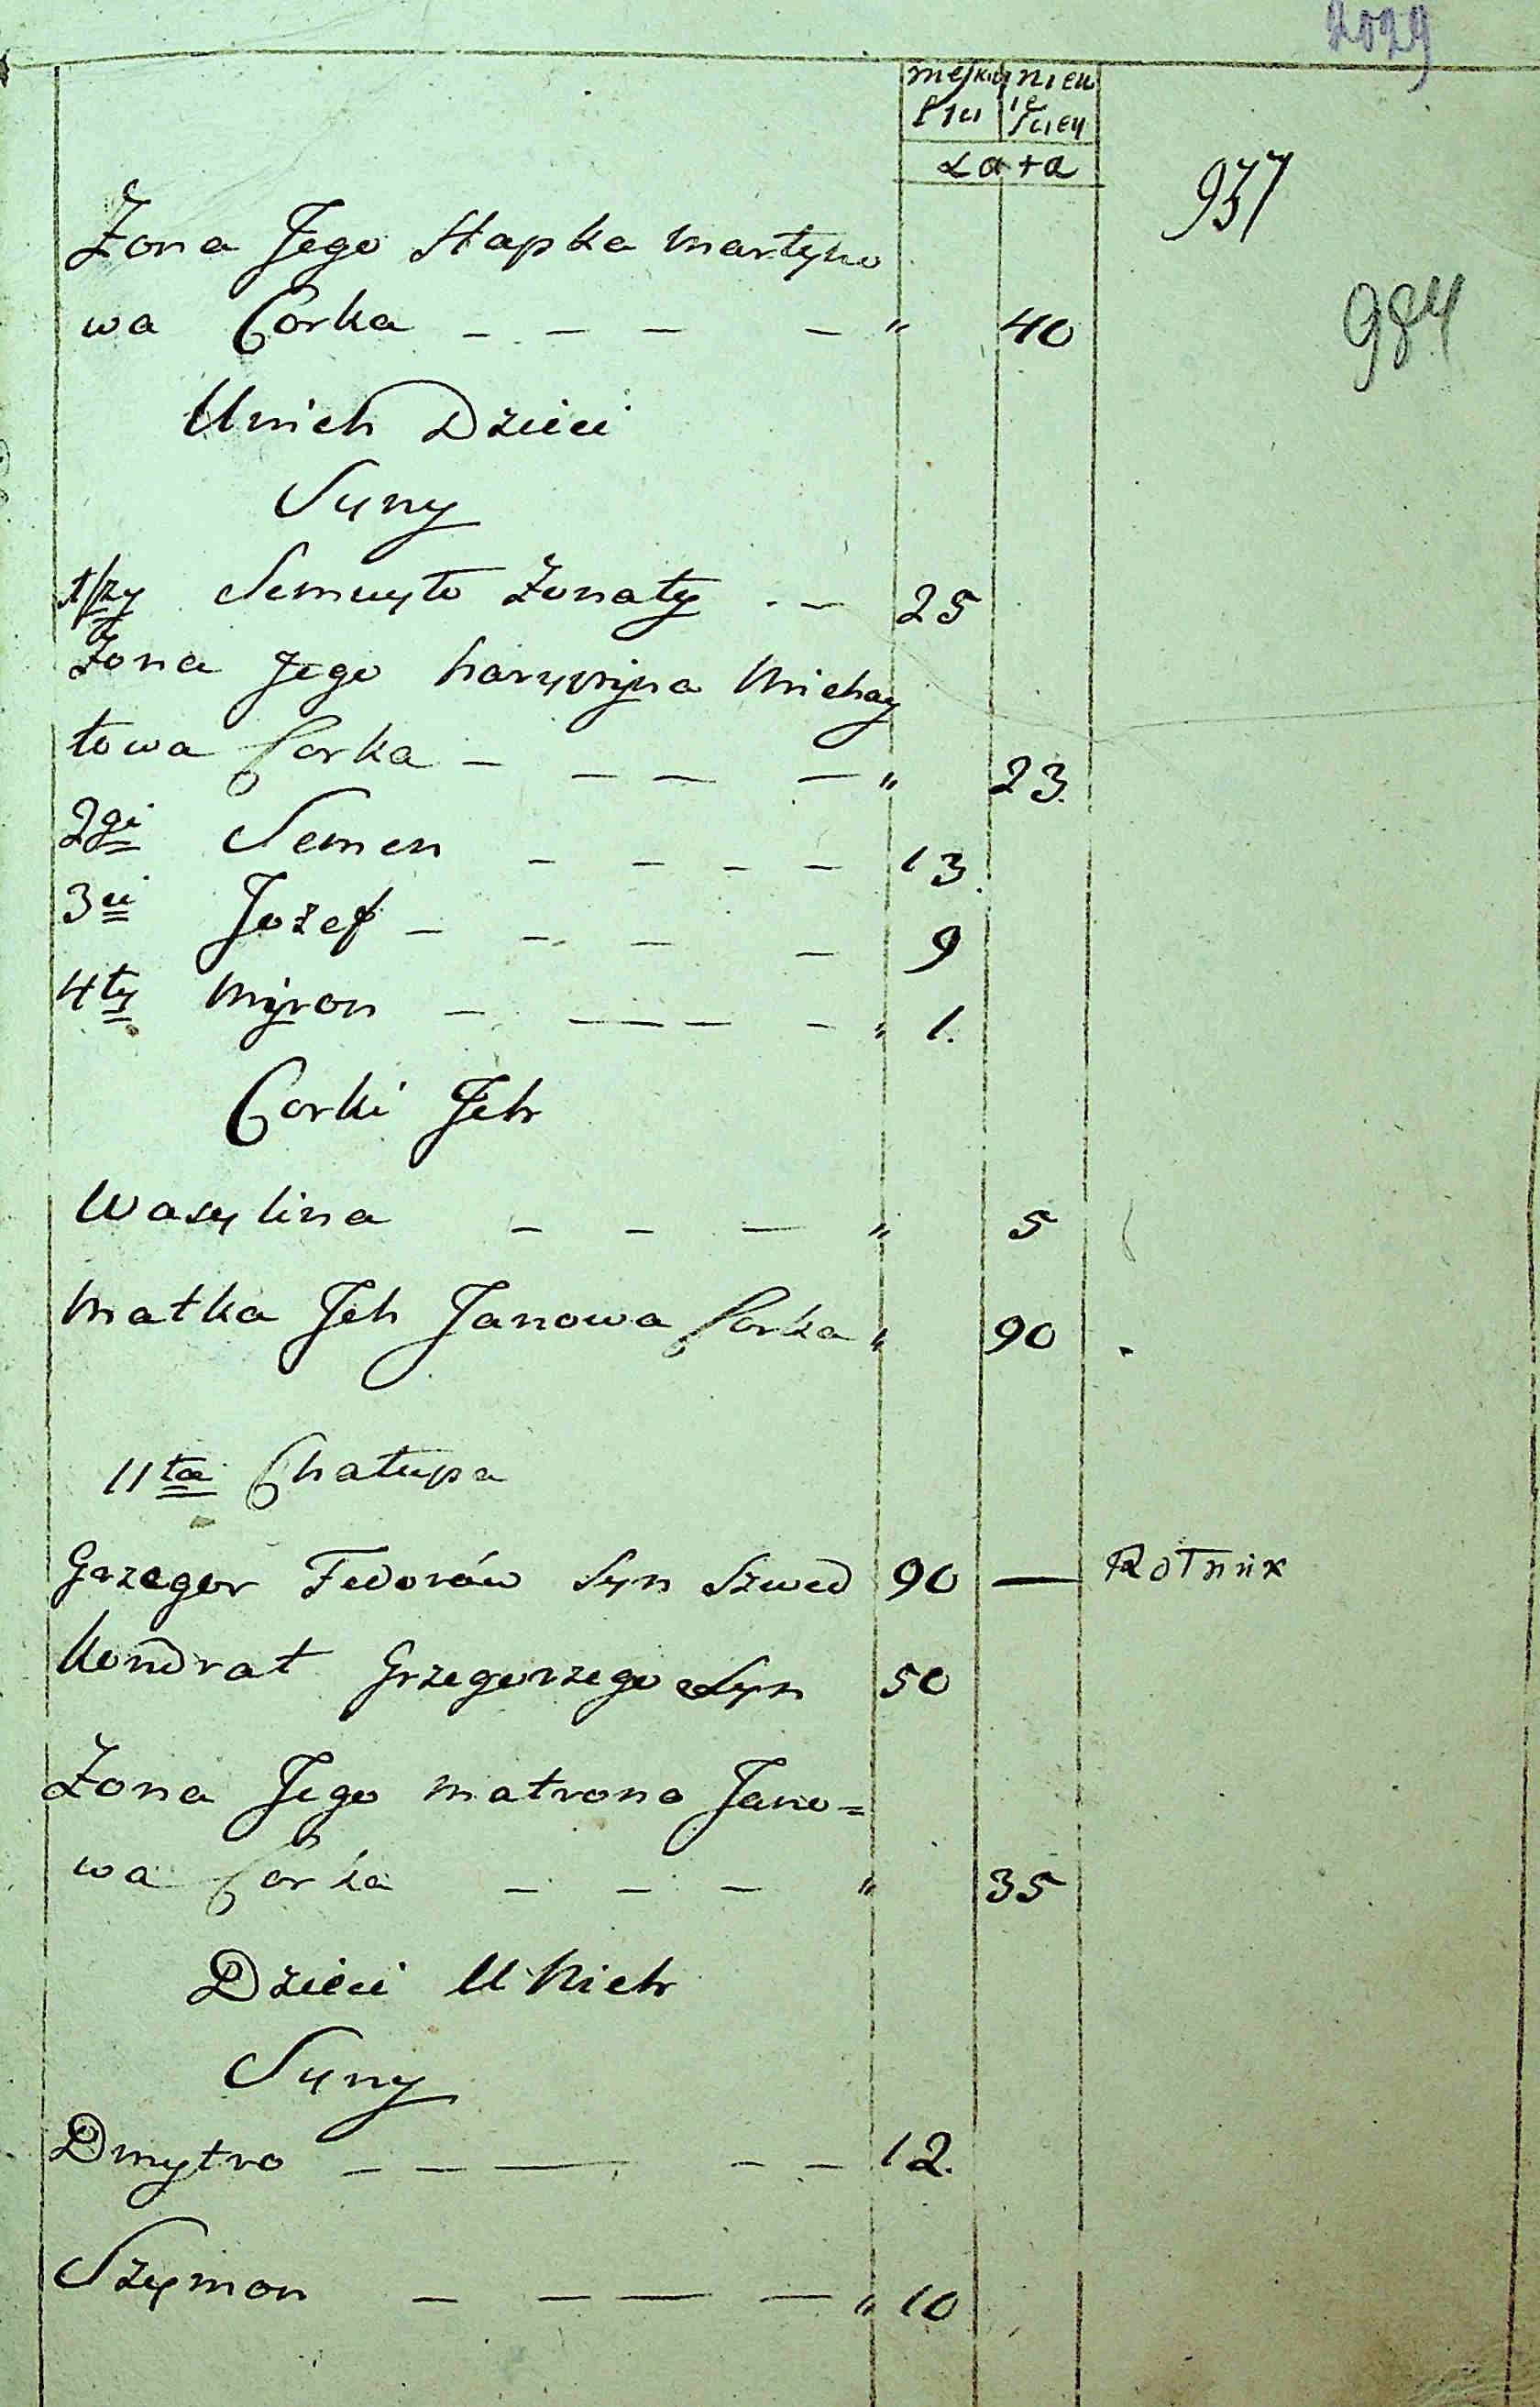 2029
męskiey niew
Płci ieściey
Lata
937
984
Żona Jego Hapka Martyno
wa Corka — — — — " 40
U nich Dzieci
Syny
1szy Samuyło Żonaty - — 25
Żona Jego Michay
łowa Corka — — — — " 23.
2gi Semen — — — — 13.
3ci Jozef — — — — 9
4ty Myron — — — — " 1.
Corki Jch
Wasylina — — — " 5
Matka Jch Janowa Corka " 90
11ta Chałupa
Grzegor Fedorów Syn Szwed 90 — Rolnik
Kondrat Grzegorzego Syn 50
Żona Jego Matrona Jano=
wa Corka — — — " 35
Dzieci U Nich
Syny
Dmytro — — — — — 12.
Szymon — — — — " 10